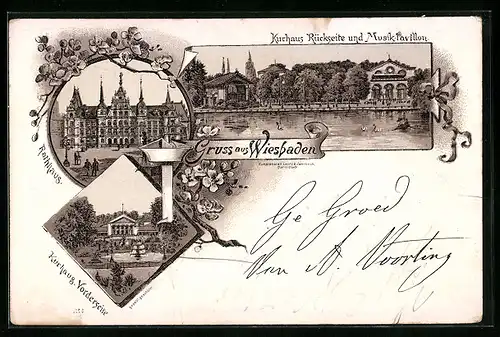 Kurhaus Rückseite und Musik-Pavillon.
Rathhaus.
Gruss aus Wiesbaden
Kurhaus, Vorderseite
Ge Groed
Van A. Voorting